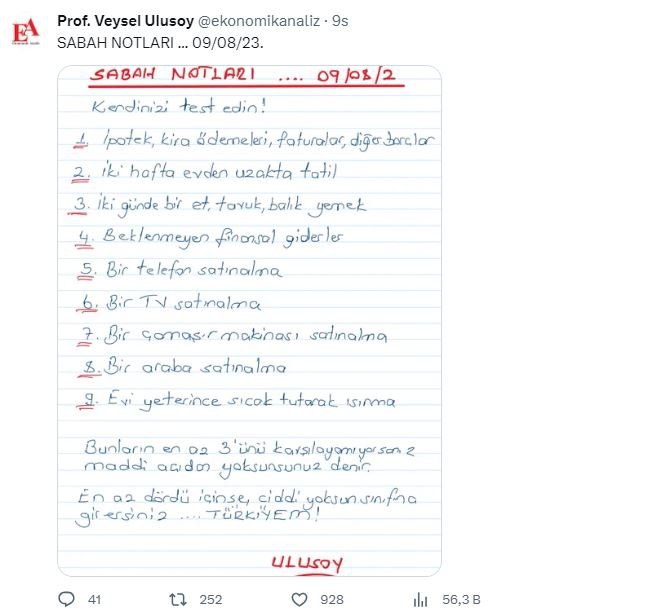 EA
Prof. Veysel Ulusoy @ekonomikanaliz · 9s
SABAH NOTLARI ... 09/08/23.
SABAH NOTLARI .... 09/08/2
Kendinizi test edin!
1. İpotek, kira ödemeleri, faturalar, diğer borçlar
2. İki hafta evden uzakta tatil
3. İki günde bir et, tavuk, balık yemek
4. Beklenmeyen finansal giderler
5. Bir telefon satınalma
6. Bir TV satınalma
7. Bir çamaşır makinası satınalma
8. Bir araba satınalma
9. Evi yeterince sıcak tutarak ısınma
Bunların en az 3'ünü karşılayamıyorsanız
maddi açıdan yoksunsunuz denir.
En az dördü içinse, ciddi yoksun sınıfına
girersiniz .... TÜRKİYEM!
ULUSOY
41 252 928 56,3 B